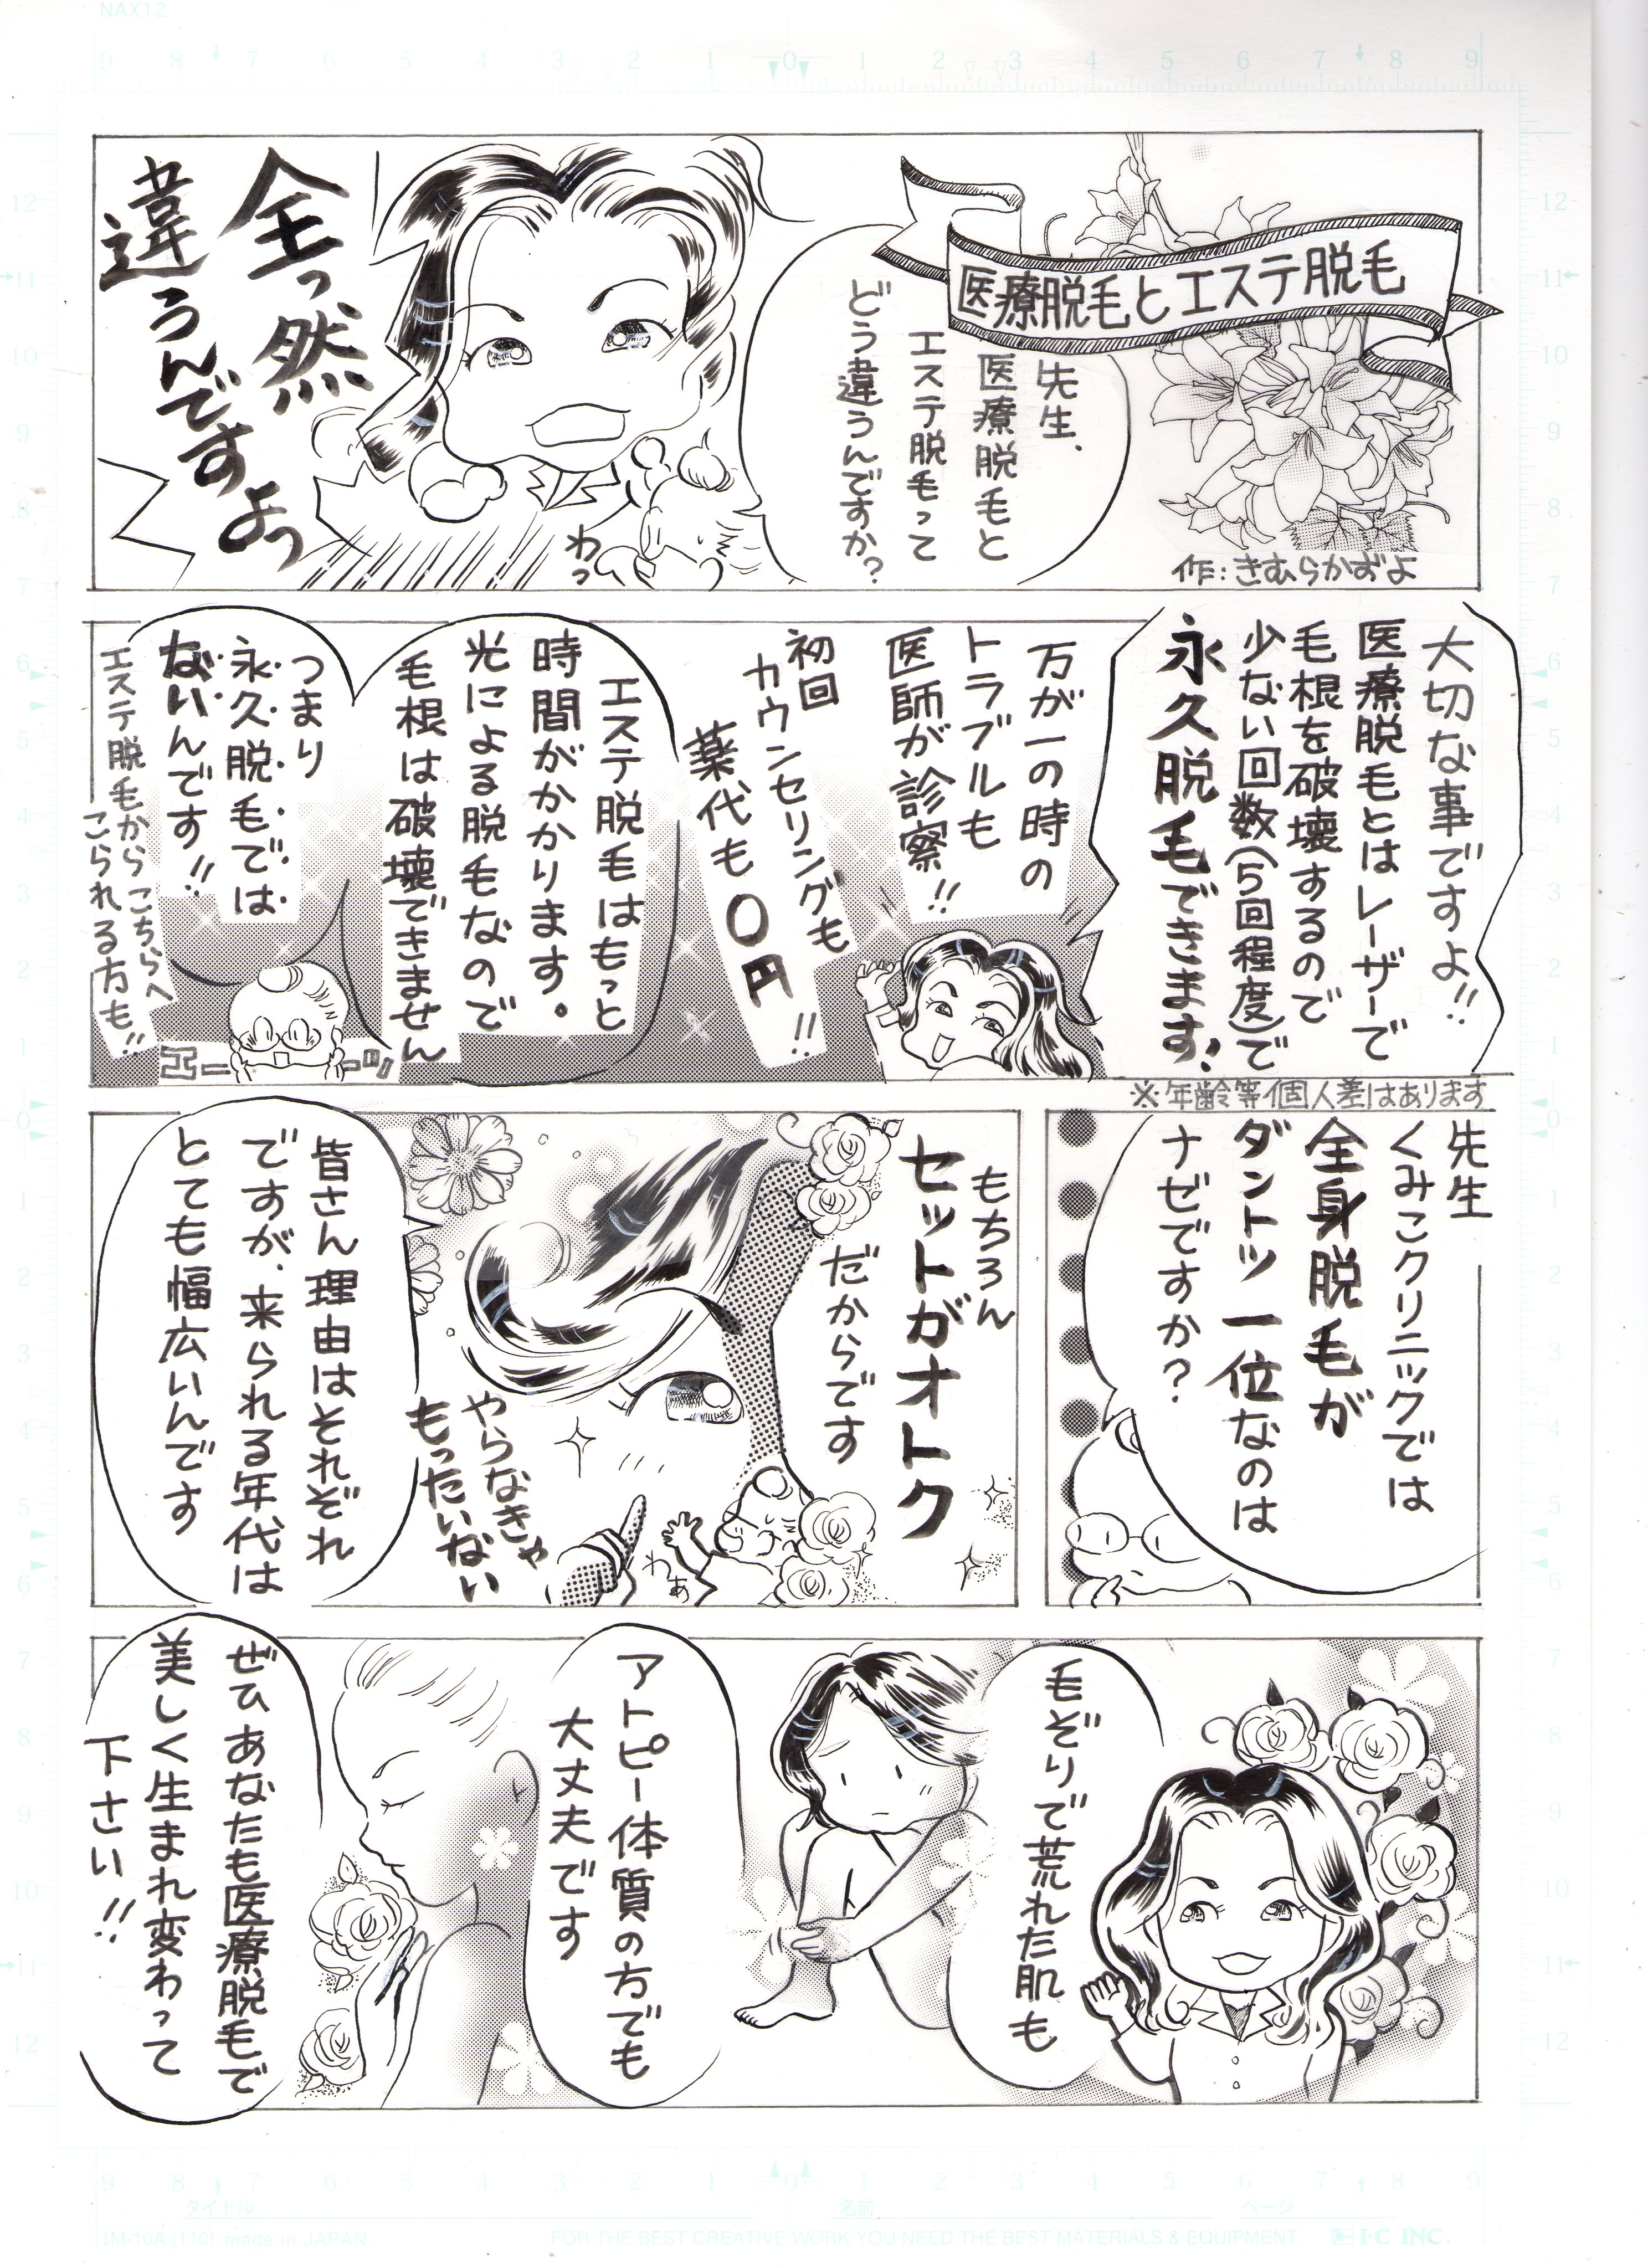 NAX12
医療脱毛とエステ脱毛
作:きむらかずよ
先生、
医療脱毛と
エステ脱毛って
どう違うんですか?
わっ
全っ然
違うんですよっ
大切な事ですよ!!
医療脱毛とはレーザーで
毛根を破壊するので
少ない回数(5回程度)で
永久脱毛できます!
※年齢等個人差はあります
万が一の時の
トラブルも
医師が診察!!
初回
カウンセリングも
薬代も0円!!
エステ脱毛はもっと
時間がかかります。
光による脱毛なので
毛根は破壊できません
つまり
永久脱毛では
ないんです!!
エーーッ
エステ脱毛からこちらへ
こられる方も!!
先生
くみこクリニックでは
全身脱毛が
ダントツ一位なのは
ナゼですか?
もちろん
セットがオトク
だからです
わぁ
やらなきゃ
もったいない
皆さん理由はそれぞれ
ですが、来られる年代は
とても幅広いんです
毛ぞりで荒れた肌も
アトピー体質の方でも
大丈夫です
ぜひあなたも医療脱毛で
美しく生まれ変わって
下さい!!
タイトル
名前
ページ
IM-10A (110) made in JAPAN
FOR THE BEST CREATIVE WORK YOU NEED THE BEST MATERIALS & EQUIPMENT
I·C INC.